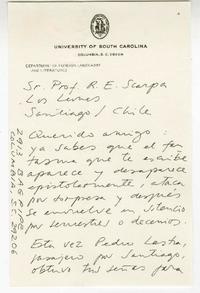 UNIVERSITY OF SOUTH CAROLINA
COLUMBIA, S. C. 29208
DEPARTMENT OF FOREIGN LANGUAGES
AND LITERATURES
Sr. Prof. R. E. Scarpa
Los Leones
Santiago / Chile
Querido amigo:
ya sabes que el fan
tasma que te escribe
aparece y desaparece
epistolarmente, ataca
por sorpresa y después
se envuelve en silencio
por semestres o decenios.
Esta vez Pedro Lastra,
pasajero por Santiago,
obtuvo tus señas para
2913
COLUMBIA, SC. 29206